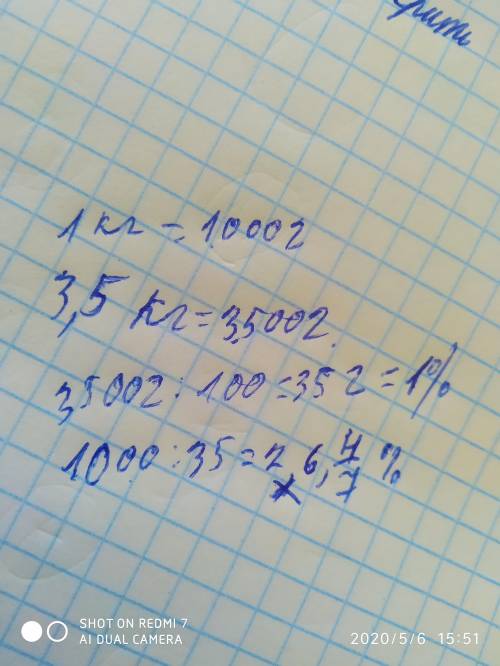 1 кг = 1000г
3,5 кг = 3500г.
3500г : 100 = 35 г = 1%
1000 : 35 = 2 6, 4/7 %
SHOT ON REDMI 7
AI DUAL CAMERA
2020/5/6 15:51